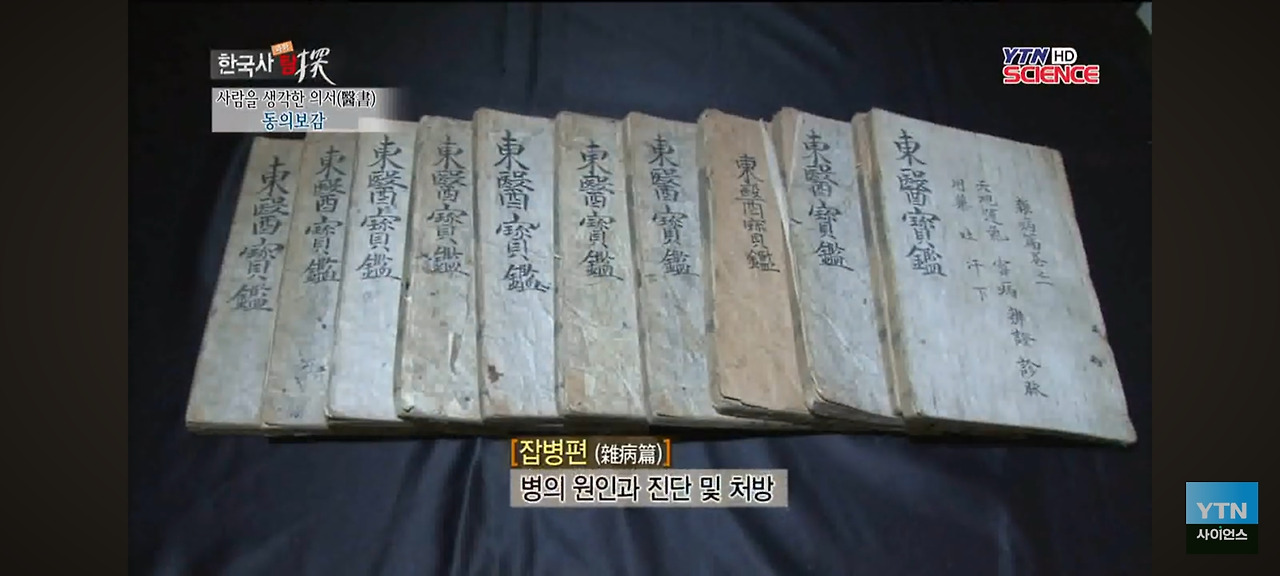 한국사 탐 探
YTN HD
SCIENCE
사람을 생각한 의서(醫書)
동의보감
東醫寶鑑
東醫寶鑑
東醫寶鑑
東醫寶鑑
東醫寶鑑
東醫寶鑑
東醫寶鑑
東醫寶鑑
東醫寶鑑
東醫寶鑑
雜病篇卷之一
天地運氣 審病 辨證 診脉
用藥 吐 汗 下
[잡병편 (雜病篇)]
병의 원인과 진단 및 처방
YTN
사이언스